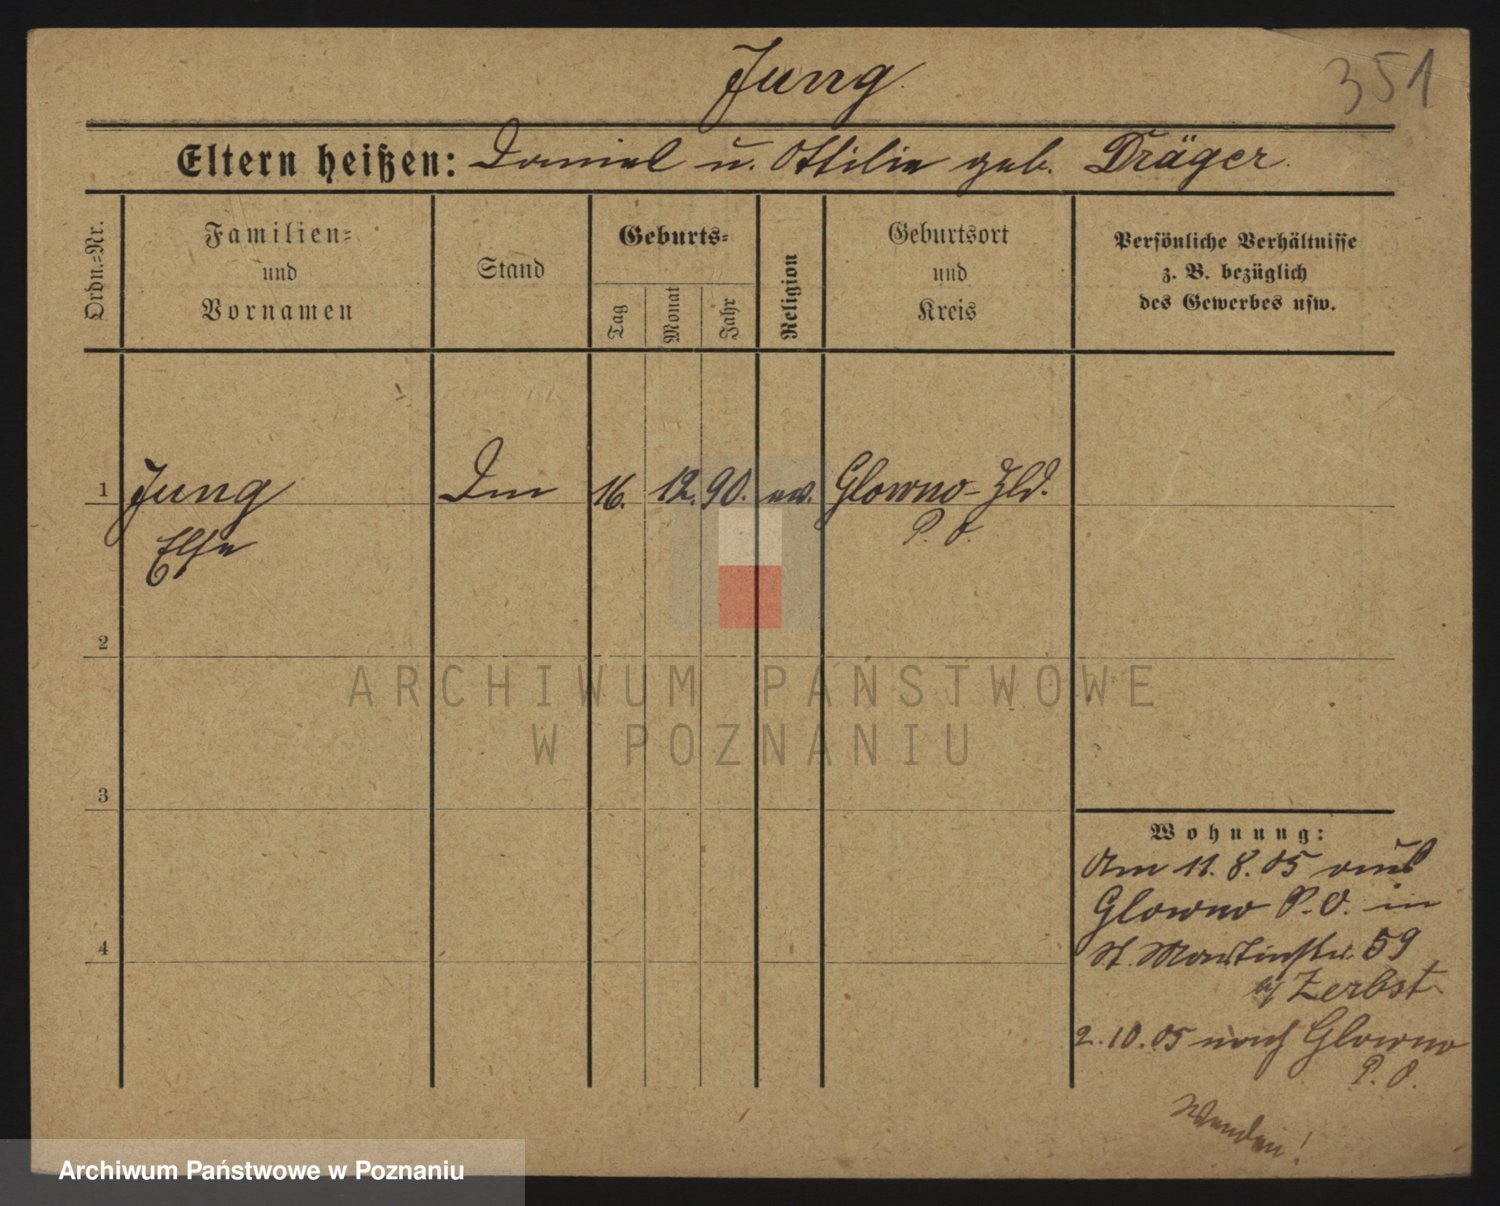 Jung
351
Eltern heißen: Daniel u. Ottilie geb. Dräger.
Ordn.-Nr.
Familien-
und
Vornamen
Stand
Geburts-
Tag
Monat
Jahr
Religion
Geburtsort
und
Kreis
Persönliche Verhältnisse
z. B. bezüglich
des Gewerbes usw.
1 Jung 16. 12. 90. ev. Glowno-Hld.
Else P. O.
2
3
4
Wohnung:
Am 11.8.05 aus
Glowno P. O. in
St. Martinstr. 59
b/ Zerbst
2.10.05 nach Glowno
P. O.
Wenden!
ARCHIWUM PAŃSTWOWE
W POZNANIU
Archiwum Państwowe w Poznaniu